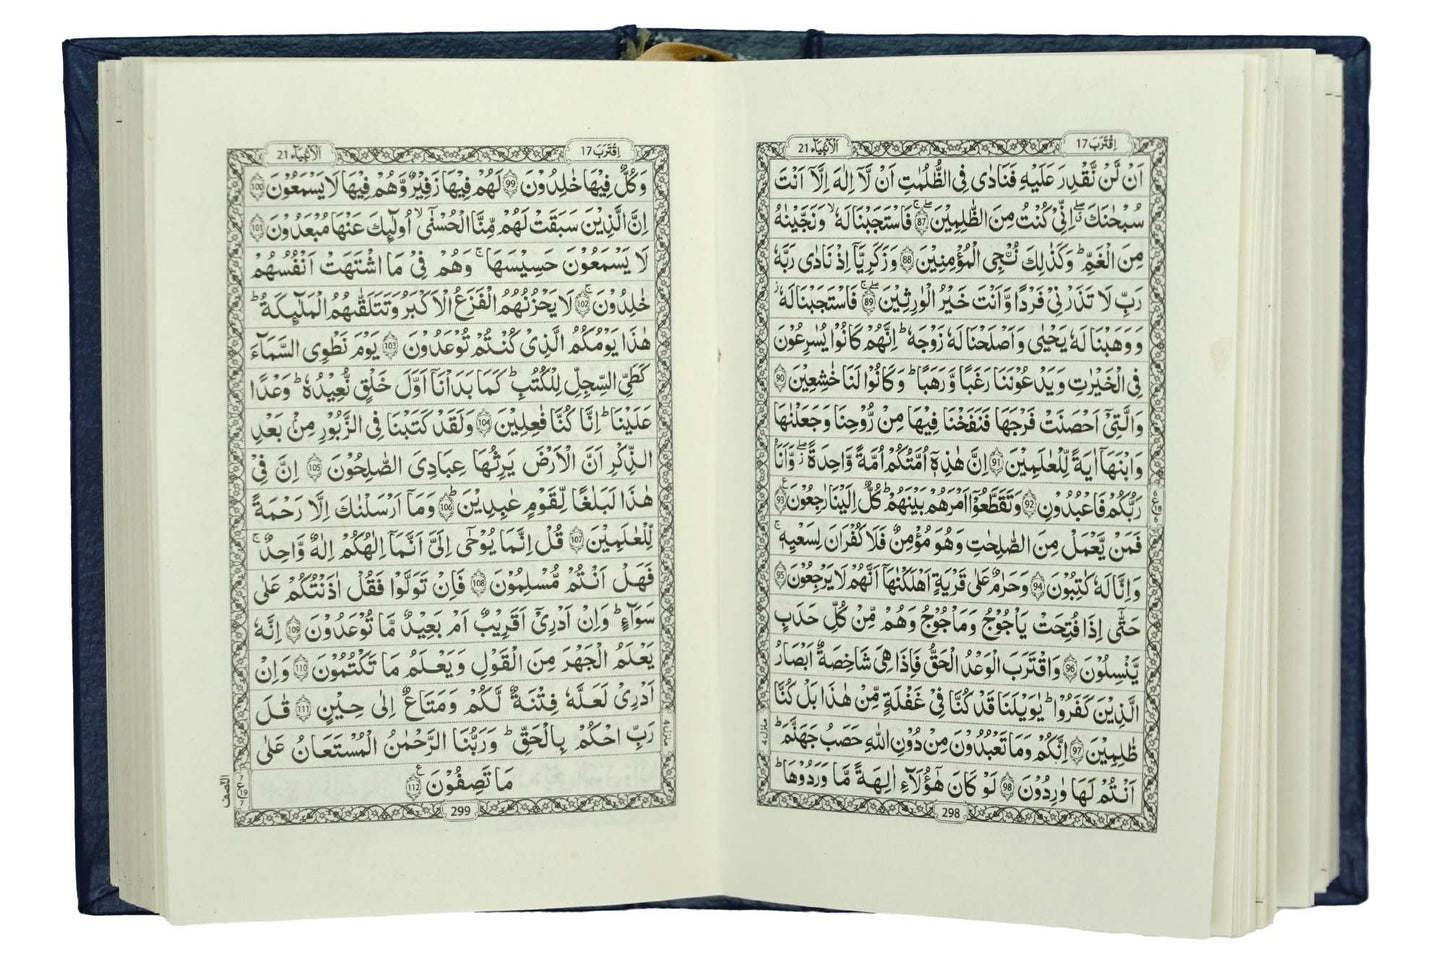 اِقْتَرَبَ 17
الْاَنْۢبِيَآء 21
اَنْ لَّنْ نَّقْدِرَ عَلَيْهِ فَنَادٰى فِى الظُّلُمٰتِ اَنْ لَّاۤ اِلٰهَ اِلَّاۤ اَنْتَ
سُبْحٰنَكَ ۖ اِنِّىْ كُنْتُ مِنَ الظّٰلِمِيْنَ ۚۖ 87 فَاسْتَجَبْنَا لَهٗ ۙ وَنَجَّيْنٰهُ
مِنَ الْغَمِّ ؕ وَكَذٰلِكَ نُـنْجِى الْمُؤْمِنِيْنَ 88 وَزَكَرِيَّاۤ اِذْ نَادٰى رَبَّهٗ
رَبِّ لَا تَذَرْنِىْ فَرْدًا وَّاَنْتَ خَيْرُ الْوٰرِثِيْنَ ۚۖ 89 فَاسْتَجَبْنَا لَهٗ ز
وَوَهَبْنَا لَهٗ يَحْيٰى وَاَصْلَحْنَا لَهٗ زَوْجَهٗ ؕ اِنَّهُمْ كَانُوْا يُسٰرِعُوْنَ
فِى الْخَيْرٰتِ وَيَدْعُوْنَنَا رَغَبًا وَّرَهَبًا ؕ وَكَانُوْا لَنَا خٰشِعِيْنَ 90
وَالَّتِىْۤ اَحْصَنَتْ فَرْجَهَا فَنَفَخْنَا فِيْهَا مِنْ رُّوْحِنَا وَجَعَلْنٰهَا
وَابْنَهَاۤ اٰيَةً لِّلْعٰلَمِيْنَ 91 اِنَّ هٰذِهٖۤ اُمَّتُكُمْ اُمَّةً وَّاحِدَةً ۖز وَّاَنَا
رَبُّكُمْ فَاعْبُدُوْنِ 92 وَتَقَطَّعُوْۤا اَمْرَهُمْ بَيْنَهُمْ ؕ كُلٌّ اِلَيْنَا رٰجِعُوْنَ 93 ع
6
ع
18
6
فَمَنْ يَّعْمَلْ مِنَ الصّٰلِحٰتِ وَهُوَ مُؤْمِنٌ فَلَا كُفْرَانَ لِسَعْيِهٖ ۚ
وَاِنَّا لَهٗ كٰتِبُوْنَ 94 وَحَرٰمٌ عَلٰى قَرْيَةٍ اَهْلَكْنٰهَاۤ اَنَّهُمْ لَا يَرْجِعُوْنَ 95
حَتّٰۤى اِذَا فُتِحَتْ يَاْجُوْجُ وَمَاْجُوْجُ وَهُمْ مِّنْ كُلِّ حَدَبٍ
يَّنْسِلُوْنَ 96 وَاقْتَرَبَ الْوَعْدُ الْحَقُّ فَاِذَا هِىَ شَاخِصَةٌ اَبْصَارُ
الَّذِيْنَ كَفَرُوْا ؕ يٰوَيْلَنَا قَدْ كُنَّا فِىْ غَفْلَةٍ مِّنْ هٰذَا بَلْ كُنَّا
ظٰلِمِيْنَ 97 اِنَّكُمْ وَمَا تَعْبُدُوْنَ مِنْ دُوْنِ اللّٰهِ حَصَبُ جَهَنَّمَ ؕ
اَنْتُمْ لَهَا وٰرِدُوْنَ 98 لَوْ كَانَ هٰٓؤُلَاۤءِ اٰلِهَةً مَّا وَرَدُوْهَا ؕ
منزل 4
298
اِقْتَرَبَ 17
الْاَنْۢبِيَآء 21
وَكُلٌّ فِيْهَا خٰلِدُوْنَ 99 لَهُمْ فِيْهَا زَفِيْرٌ وَّهُمْ فِيْهَا لَا يَسْمَعُوْنَ 100
اِنَّ الَّذِيْنَ سَبَقَتْ لَهُمْ مِّنَّا الْحُسْنٰٓى ۙ اُولٰٓئِكَ عَنْهَا مُبْعَدُوْنَ ۙ 101
لَا يَسْمَعُوْنَ حَسِيْسَهَا ۚ وَهُمْ فِىْ مَا اشْتَهَتْ اَنْفُسُهُمْ
خٰلِدُوْنَ ۚ 102 لَا يَحْزُنُهُمُ الْفَزَعُ الْاَكْبَرُ وَتَتَلَقّٰٮهُمُ الْمَلٰٓئِكَةُ ؕ
هٰذَا يَوْمُكُمُ الَّذِىْ كُنْتُمْ تُوْعَدُوْنَ 103 يَوْمَ نَطْوِى السَّمَآءَ
كَطَىِّ السِّجِلِّ لِلْكُتُبِ ؕ كَمَا بَدَاْنَاۤ اَوَّلَ خَلْقٍ نُّعِيْدُهٗ ؕ وَعْدًا
عَلَيْنَا ؕ اِنَّا كُنَّا فٰعِلِيْنَ 104 وَلَقَدْ كَتَبْنَا فِى الزَّبُوْرِ مِنْۢ بَعْدِ
الذِّكْرِ اَنَّ الْاَرْضَ يَرِثُهَا عِبَادِىَ الصّٰلِحُوْنَ 105 اِنَّ فِىْ
هٰذَا لَبَلٰغًا لِّقَوْمٍ عٰبِدِيْنَ ؕ 106 وَمَاۤ اَرْسَلْنٰكَ اِلَّا رَحْمَةً
لِّلْعٰلَمِيْنَ 107 قُلْ اِنَّمَا يُوْحٰۤى اِلَىَّ اَنَّمَاۤ اِلٰهُكُمْ اِلٰهٌ وَّاحِدٌ ۚ
فَهَلْ اَنْتُمْ مُّسْلِمُوْنَ 108 فَاِنْ تَوَلَّوْا فَقُلْ اٰذَنْتُكُمْ عَلٰى
سَوَآءٍ ؕ وَاِنْ اَدْرِىْۤ اَقَرِيْبٌ اَمْ بَعِيْدٌ مَّا تُوْعَدُوْنَ 109 اِنَّهٗ
يَعْلَمُ الْجَهْرَ مِنَ الْقَوْلِ وَيَعْلَمُ مَا تَكْتُمُوْنَ 110 وَاِنْ
اَدْرِىْ لَعَلَّهٗ فِتْنَةٌ لَّكُمْ وَمَتَاعٌ اِلٰى حِيْنٍ 111 قٰلَ
رَبِّ احْكُمْ بِالْحَقِّ ؕ وَرَبُّنَا الرَّحْمٰنُ الْمُسْتَعَانُ عَلٰى
مَا تَصِفُوْنَ 112 ع
منزل 4
ع
19
7
299